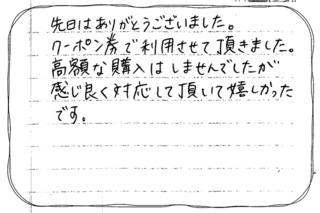 先日はありがとうございました。
クーポン券で利用させて頂きました。
高額な購入はしませんでしたが
感じ良く対応して頂いて嬉しかった
です。